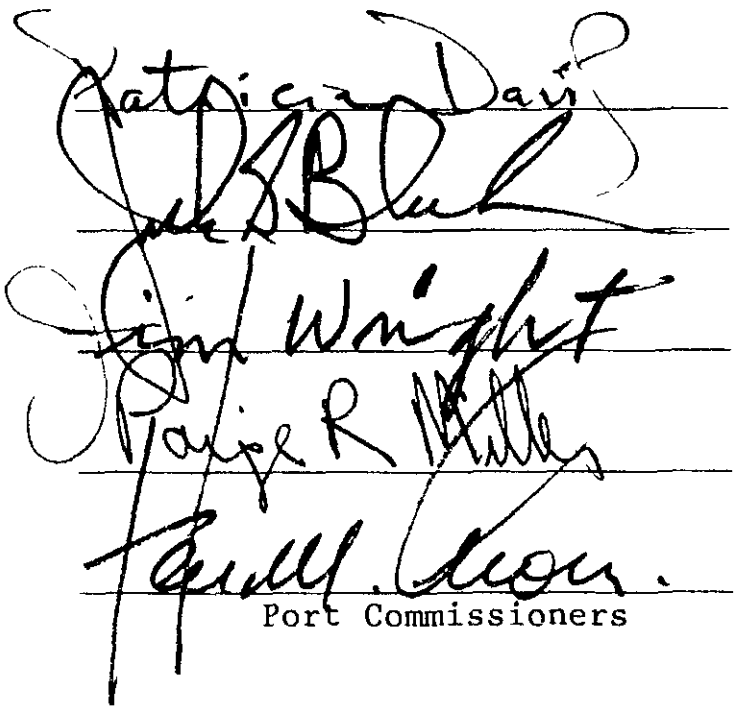 Patricia Davis
Jack S Block
Jim Wright
Paige R Miller
Port Commissioners